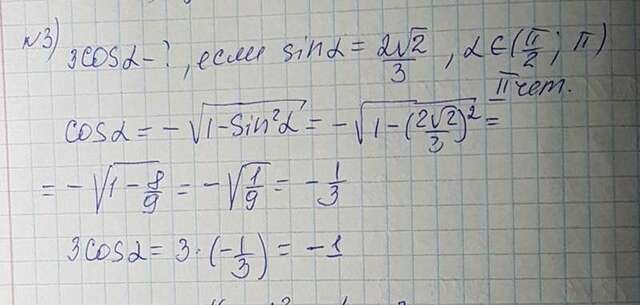 №3) 3cosα - ?, если sinα = 2√2/3, α ∈ (π/2; π)
II чет.
cosα = -√(1-sin²α) = -√(1-(2√2/3)²) =
= -√(1-8/9) = -√(1/9) = -1/3
3cosα = 3·(-1/3) = -1